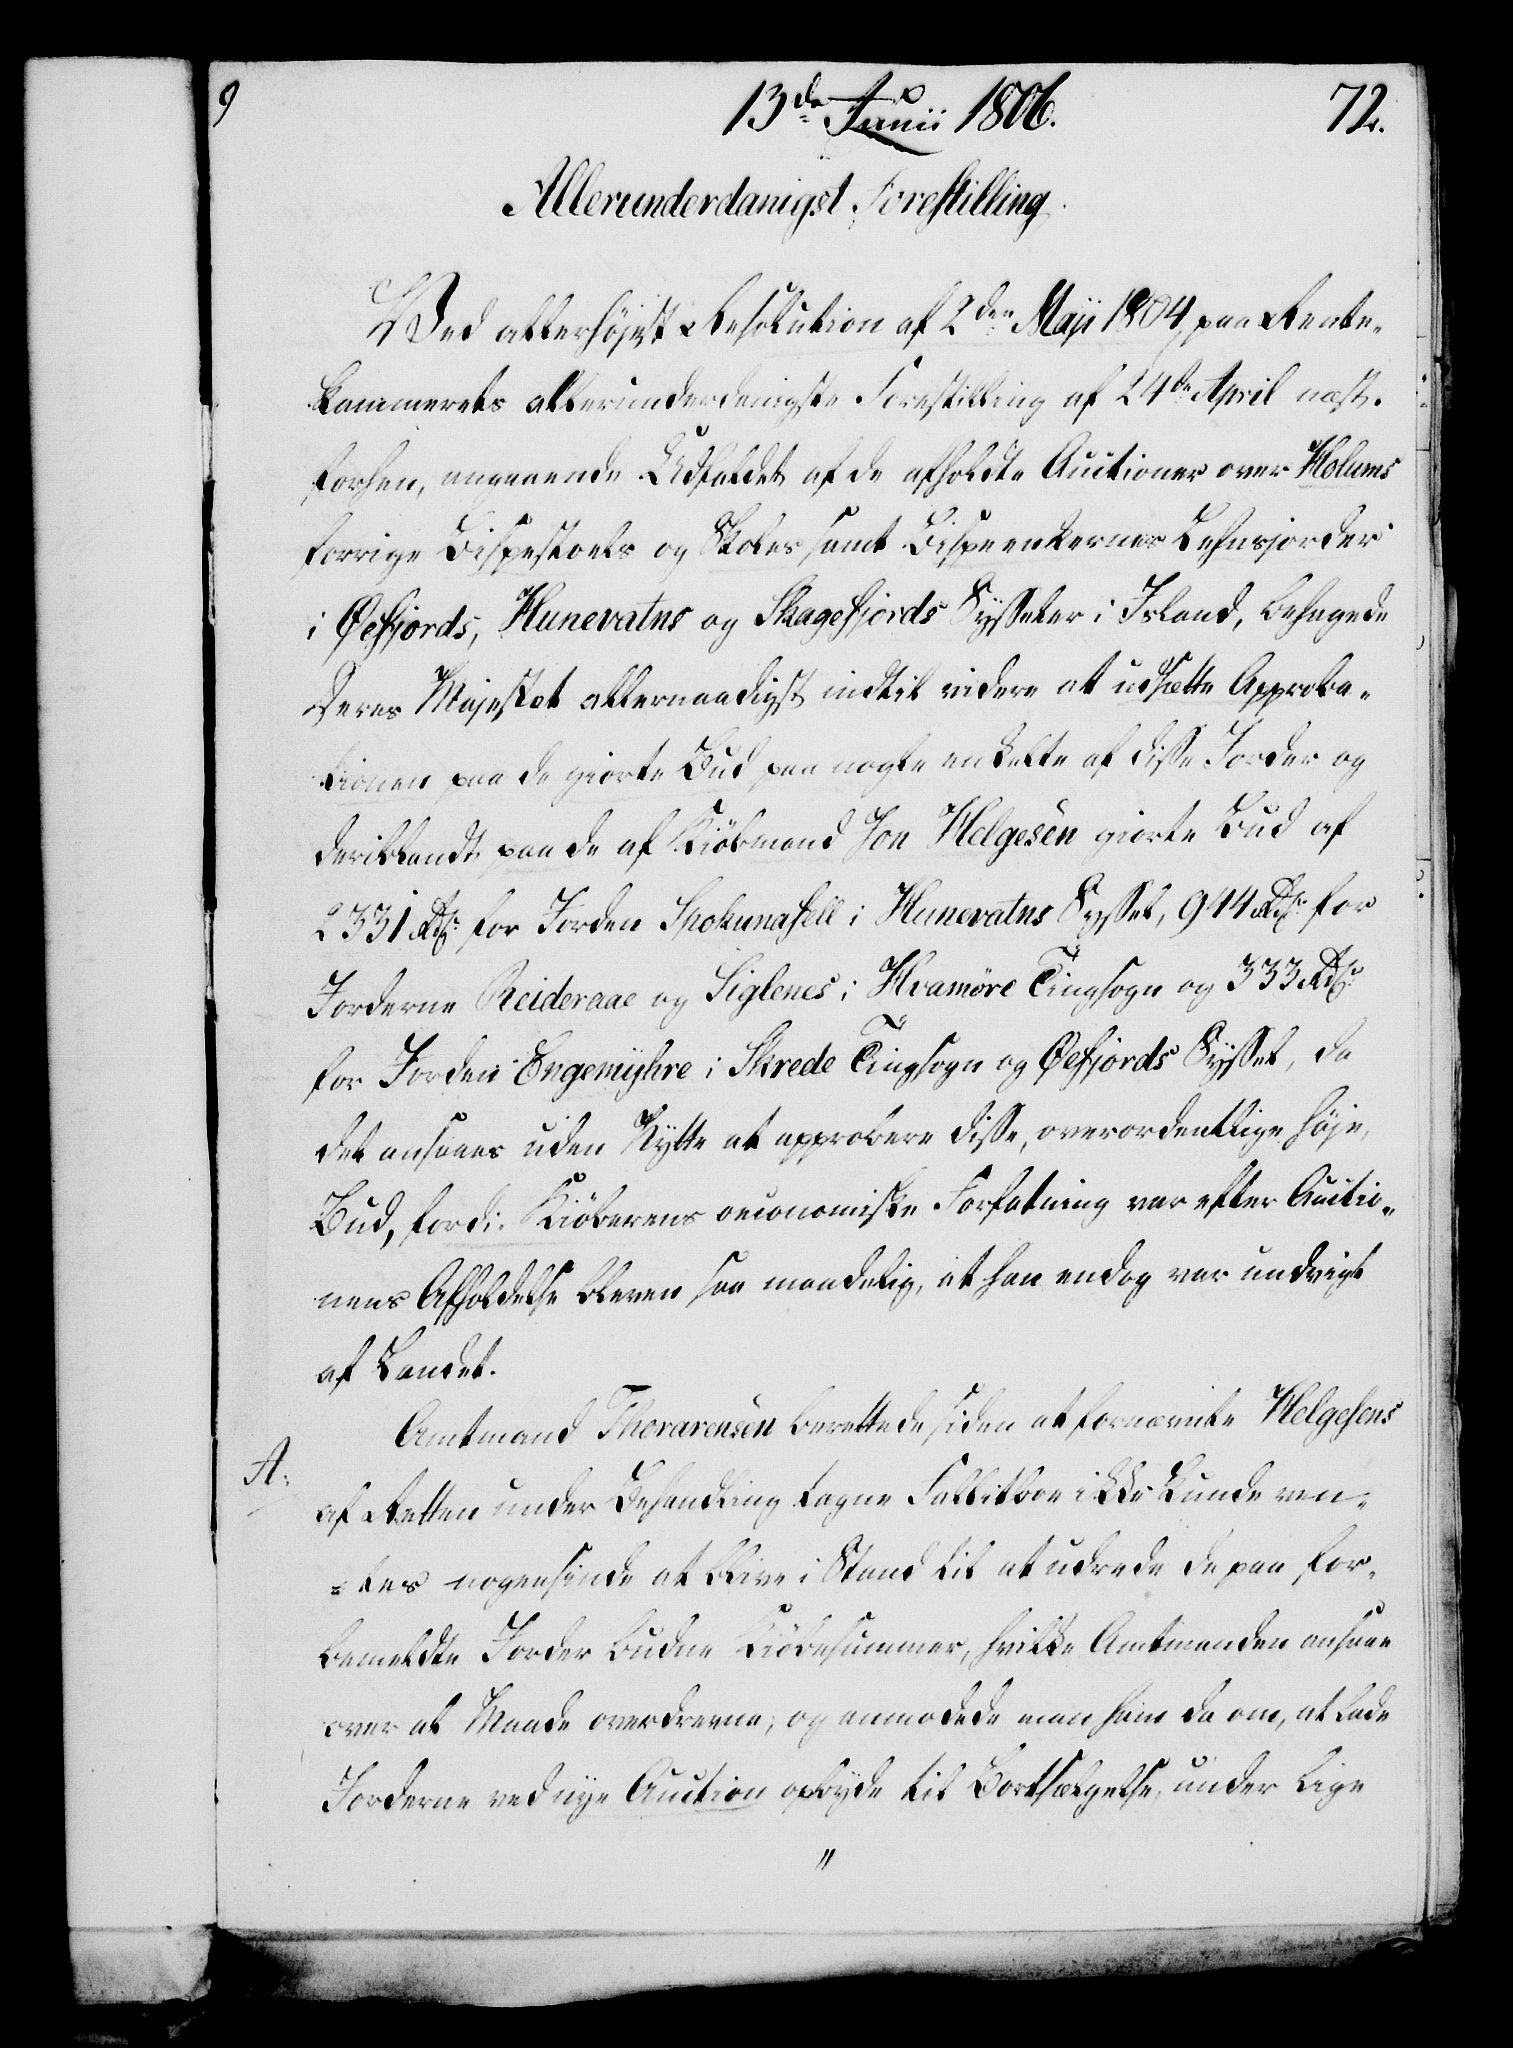 9
13de Junii 1806.
72.
Allerunderdanigst Forestilling
Ved allerhöjest Resolution af 2den Maji 1804, paa Rente-
kammerets allerunderdanigste Forestilling af 24de April næst-
forhen, angaaende Udfaldet af de afholdte Auctioner over Holums
forrige Bispestoels og Skoles samt Bispeenkernes Lehnsjorder
i Øefjords, Hunevatns og Skagefjords Sysseler i Island, behagede
Deres Majestet allernaadigst indtil videre at udsætte Approba-
tionen paa de giorte Bud paa nogle enkelte af disse Jorder og
deriblandt paa de af Kiöbmand Jon Helgesen giorte Bud af
2331 Rdr for Jorden Spokunafell i Hunevatns Syssel, 944 Rdr for
Jorderne Reideraae og Siglenes i Hvamöre Tingsogn og 333 Rdr
for Jorden Engemijhre i Skrede Tingsogn og Øefjords Syssel, da
det ansaaes uden Nytte at approbere disse, overordentlige höje,
Bud, fordi Kiöberens oeconomiske Forfatning var efter Auctio-
nens Afholdelse bleven saa maadelig, at han endog var undvigt
af Landet.
Amtmand Thorarensen berettede siden at fornævnte Helgesens
A.
af Retten under Behandling tagne Fallitboe ikke kunde ven-
-tes nogensinde at blive i Stand til at udrede de paa for-
bemeldte Jorder budne Kiöbesummer, hvilke Amtmanden ansaae
over al Maade overdrevne; og anmodede man ham da om, at lade
Jorderne ved nye Auction opbyde til Bortsælgelse, under lige
"